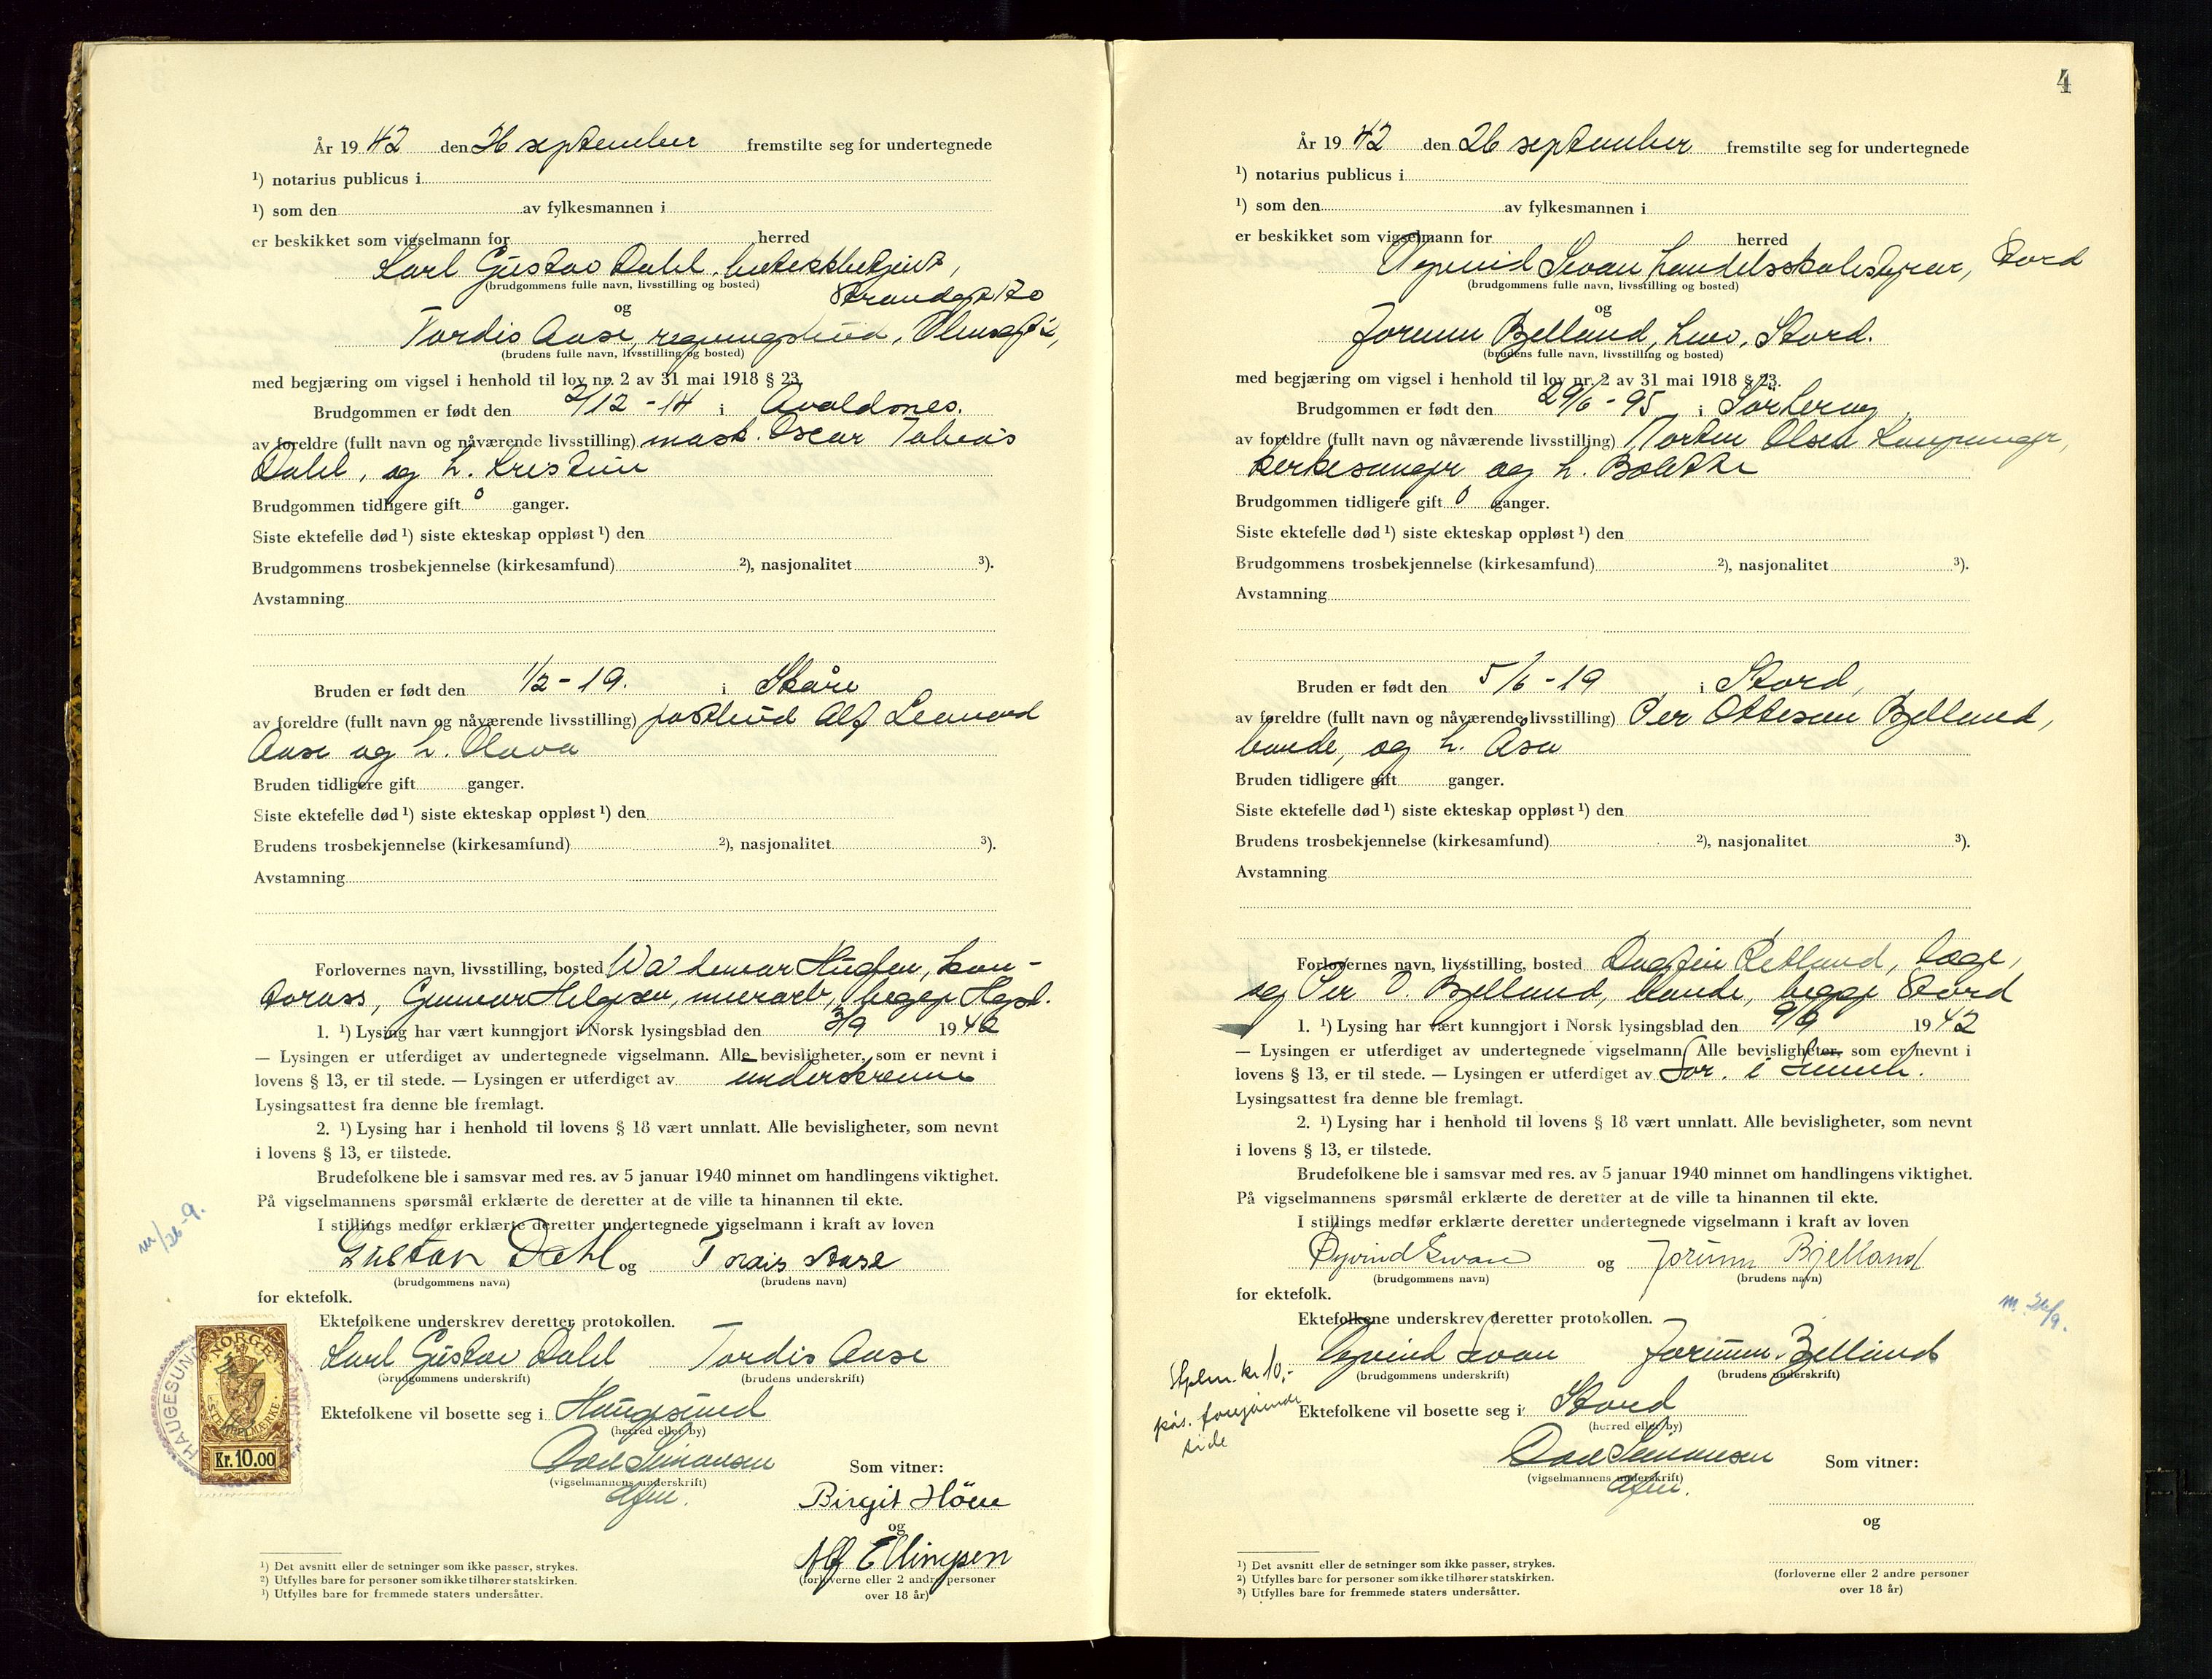 År 19 42 den 26 september fremstilte seg for undertegnede
¹) notarius publicus i
¹) som den av fylkesmannen i
er beskikket som vigselmann for herred
Karl Gustav Dahl,
(brudgommens fulle navn, livsstilling og bosted)
Strandgt 170
og
Tordis Aase,
(brudens fulle navn, livsstilling og bosted)
med begjæring om vigsel i henhold til lov nr. 2 av 31 mai 1918 § 23.
Brudgommen er født den 2/12 - 14 i Avaldsnes.
av foreldre (fullt navn og nåværende livsstilling) mask. Oscar Tobias
Dahl, og h. Kristine
Brudgommen tidligere gift 0 ganger.
Siste ektefelle død ¹) siste ekteskap oppløst ¹) den
Brudgommens trosbekjennelse (kirkesamfund) ²), nasjonalitet ³).
Avstamning
Bruden er født den 1/2 - 19. i Skåre
av foreldre (fullt navn og nåværende livsstilling) postbud Alf Leonard
Aase og h. Olava
Bruden tidligere gift ganger.
Siste ektefelle død ¹) siste ekteskap oppløst ¹) den
Brudens trosbekjennelse (kirkesamfund) ²), nasjonalitet ³).
Avstamning
Forlovernes navn, livsstilling, bosted Waldemar kon-
torass, Gunnar Helgesen, murarb, begge Hgsd.
1. ¹) Lysing har vært kunngjort i Norsk lysingsblad den 3/9 19 42
— Lysingen er utferdiget av undertegnede vigselmann. Alle bevisligheter, som er nevnt i
lovens § 13, er til stede. — Lysingen er utferdiget av
Lysingsattest fra denne ble fremlagt.
2. ¹) Lysing har i henhold til lovens § 18 vært unnlatt. Alle bevisligheter, som nevnt
i lovens § 13, er tilstede.
Brudefolkene ble i samsvar med res. av 5 januar 1940 minnet om handlingens viktighet.
På vigselmannens spørsmål erklærte de deretter at de ville ta hinannen til ekte.
m/26-9.
I stillings medfør erklærte deretter undertegnede vigselmann i kraft av loven
Gustav Dahl og Tordis Aase
(brudgommens navn) (brudens navn)
for ektefolk.
Ektefolkene underskrev deretter protokollen.
NORGE
Karl Gustav Dahl Tordis Aase
(brudgommens underskrift) (brudens underskrift)
HAUGESUND
STEMPELMERKE
Ektefolkene vil bosette seg i Haugesund
(herred eller by)
Kr. 10.00
Simonsen Som vitner:
(vigselmannens underskrift)
Birgit
og
Alf Ellingsen
(forloverne eller 2 andre personer
over 18 år)
¹) Det avsnitt eller de setninger som ikke passer, strykes.
²) Utfylles bare for personer som ikke tilhører statskirken.
³) Utfylles bare for fremmede staters undersåtter.
4
År 19 42 den 26 september fremstilte seg for undertegnede
¹) notarius publicus i
¹) som den av fylkesmannen i
er beskikket som vigselmann for herred
Øyvind Svan handelsskolestyrer, Stord
(brudgommens fulle navn, livsstilling og bosted)
og
Jorunn Bjelland, Stord.
(brudens fulle navn, livsstilling og bosted)
med begjæring om vigsel i henhold til lov nr. 2 av 31 mai 1918 § 23.
Brudgommen er født den 29/6 - 95 i
av foreldre (fullt navn og nåværende livsstilling) Olsen Kaupanger,
kirkesanger og h. Bolette
Brudgommen tidligere gift 0 ganger.
Siste ektefelle død ¹) siste ekteskap oppløst ¹) den
Brudgommens trosbekjennelse (kirkesamfund) ²), nasjonalitet ³).
Avstamning
Bruden er født den 5/6 - 19 i Stord,
av foreldre (fullt navn og nåværende livsstilling) Per Ottesen Bjelland,
bonde, og h. Åsa
Bruden tidligere gift ganger.
Siste ektefelle død ¹) siste ekteskap oppløst ¹) den
Brudens trosbekjennelse (kirkesamfund) ²), nasjonalitet ³).
Avstamning
Forlovernes navn, livsstilling, bosted Dagfin
og Per O. Bjelland, bonde, begge Stord
1. ¹) Lysing har vært kunngjort i Norsk lysingsblad den 9/9 19 42
— Lysingen er utferdiget av undertegnede vigselmann. Alle bevisligheter, som er nevnt i
lovens § 13, er til stede. — Lysingen er utferdiget av Sor. i Sunnh.
Lysingsattest fra denne ble fremlagt.
2. ¹) Lysing har i henhold til lovens § 18 vært unnlatt. Alle bevisligheter, som nevnt
i lovens § 13, er tilstede.
Brudefolkene ble i samsvar med res. av 5 januar 1940 minnet om handlingens viktighet.
På vigselmannens spørsmål erklærte de deretter at de ville ta hinannen til ekte.
I stillings medfør erklærte deretter undertegnede vigselmann i kraft av loven
Øyvind Svan og Jorunn Bjelland
(brudgommens navn) (brudens navn)
for ektefolk.
m. 26/9.
Ektefolkene underskrev deretter protokollen.
Øyvind Svan Jorunn Bjelland
(brudgommens underskrift) (brudens underskrift)
Stplm. kr 10,-
pås. foregående
side
Ektefolkene vil bosette seg i Stord
(herred eller by)
Simonsen Som vitner:
(vigselmannens underskrift)
og
(forloverne eller 2 andre personer
over 18 år)
¹) Det avsnitt eller de setninger som ikke passer, strykes.
²) Utfylles bare for personer som ikke tilhører statskirken.
³) Utfylles bare for fremmede staters undersåtter.